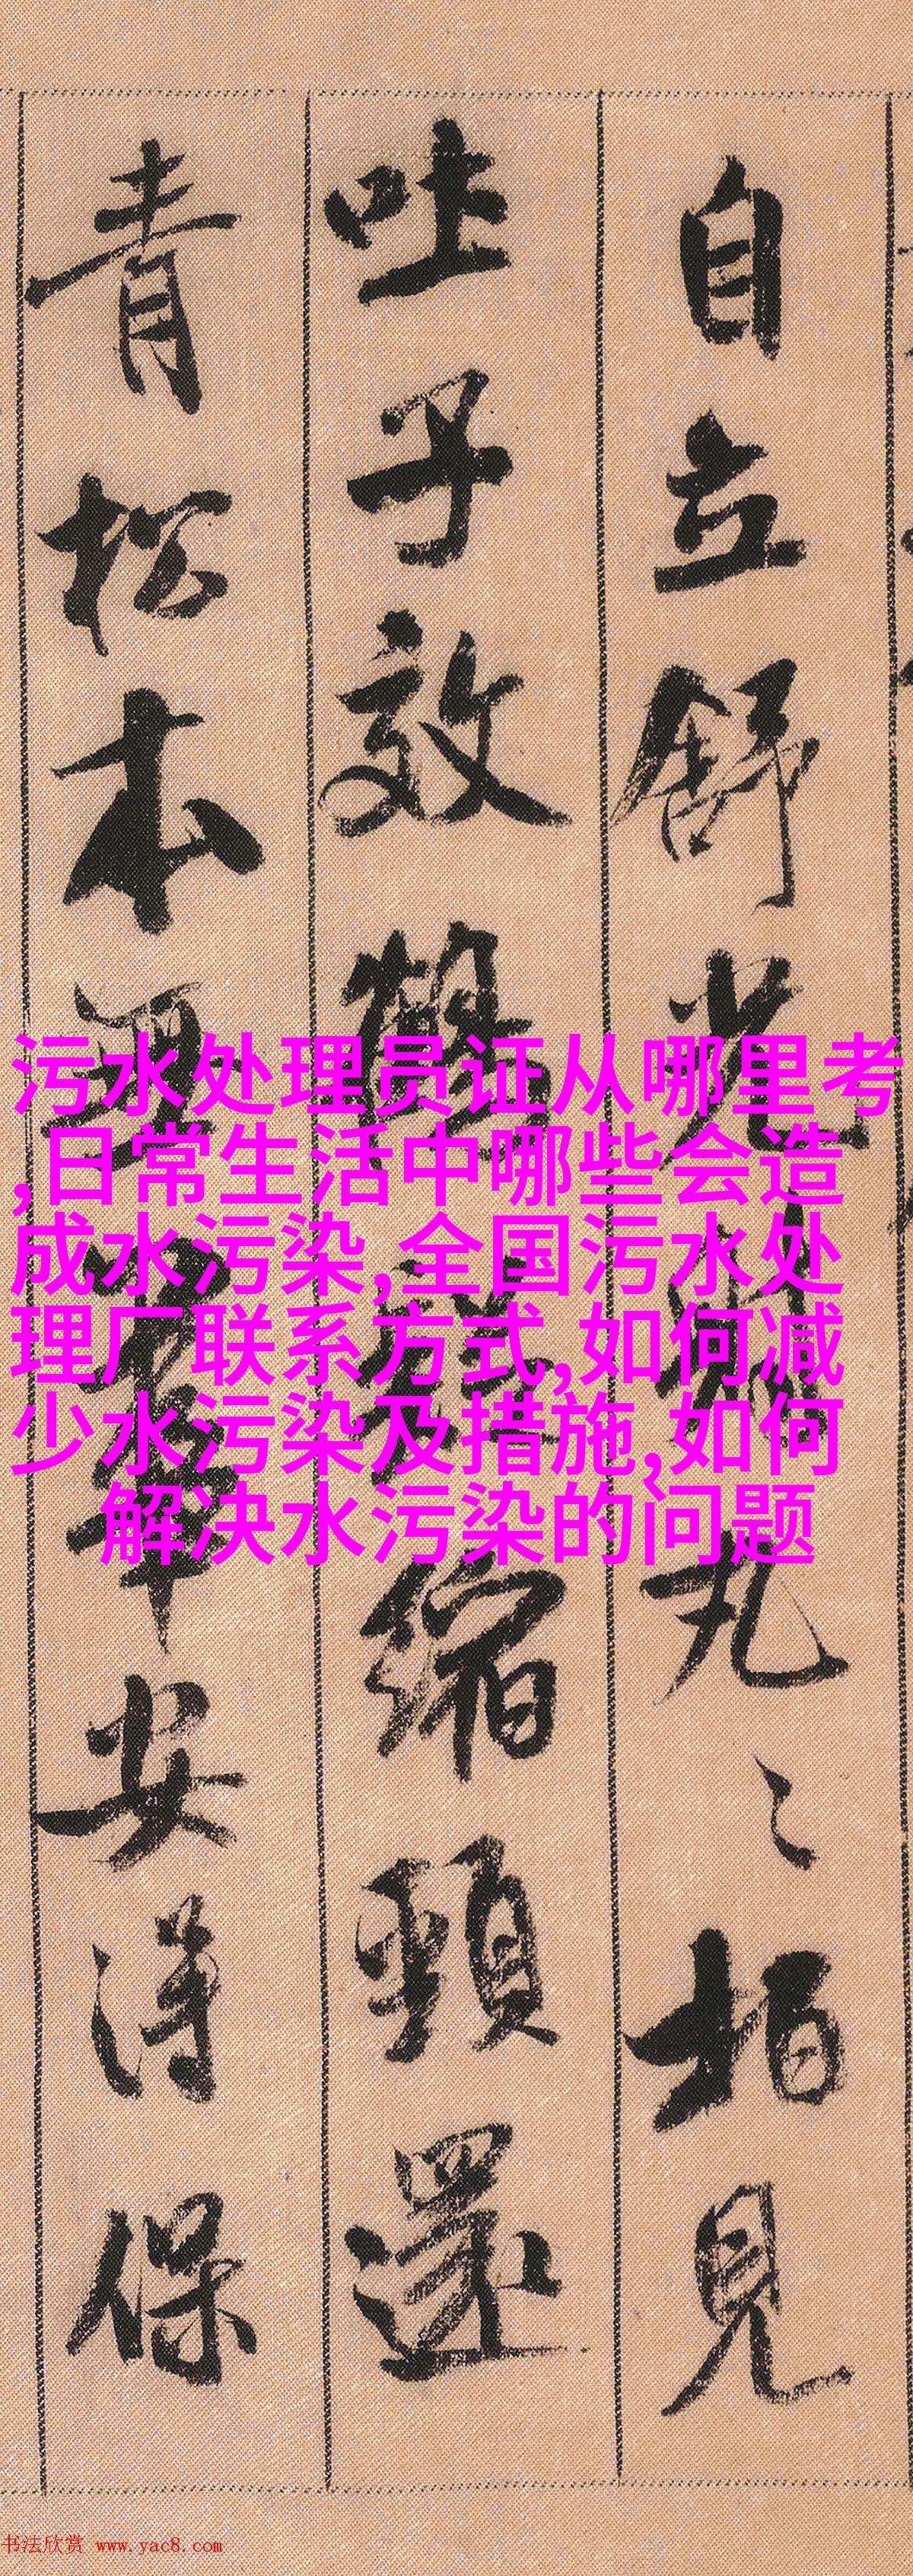 自立舒光射丸〻柏見
吐子效鶴疑縮頸還
青松本無華安得保
污水处理员证从哪里考
,日常生活中哪些会造
成水污染,全国污水处
理厂联系方式,如何减
少水污染及措施,如何
解决水污染的问题
书法欣赏 www.yac8.com